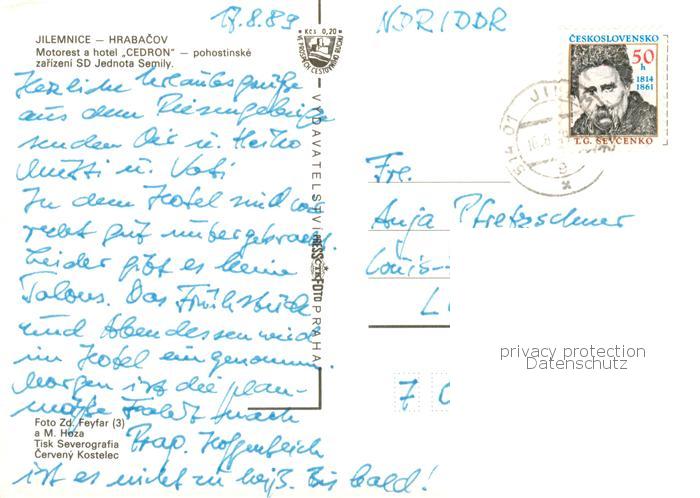 17.8.89
NDR/DDR
JILEMNICE – HRABAČOV
Motorest a hotel „CEDRON" – pohostinské
zařízení SD Jednota Semily.
Kčs 0,20
VE PROSPĚCH CESTOVNÍHO RUCHU
ČESKOSLOVENSKO
50 h
1814
1861
T. G. ŠEVČENKO
Herzliche Urlaubsgrüße
aus dem Riesengebirge
senden Dir u. Heiko
Mutti u. Vati
In dem Hotel sind wir
recht gut untergebracht.
Leider gibt es keine
Talons. Das Frühstück
und Abendessen wird
im Hotel eingenommen.
Morgen ist die plan-
mäße Fahrt nach
Prag. Hoffentlich
ist es nicht zu heiß. Bis bald!
VYDAVATELSTVÍ PRESSFOTO PRAHA
ČTK
Frl.
Anja Pfretzschner
Louis-
L
7
privacy protection
Datenschutz
Foto Zd. Feyfar (3)
a M. Hoza
Tisk Severografia
Červený Kostelec